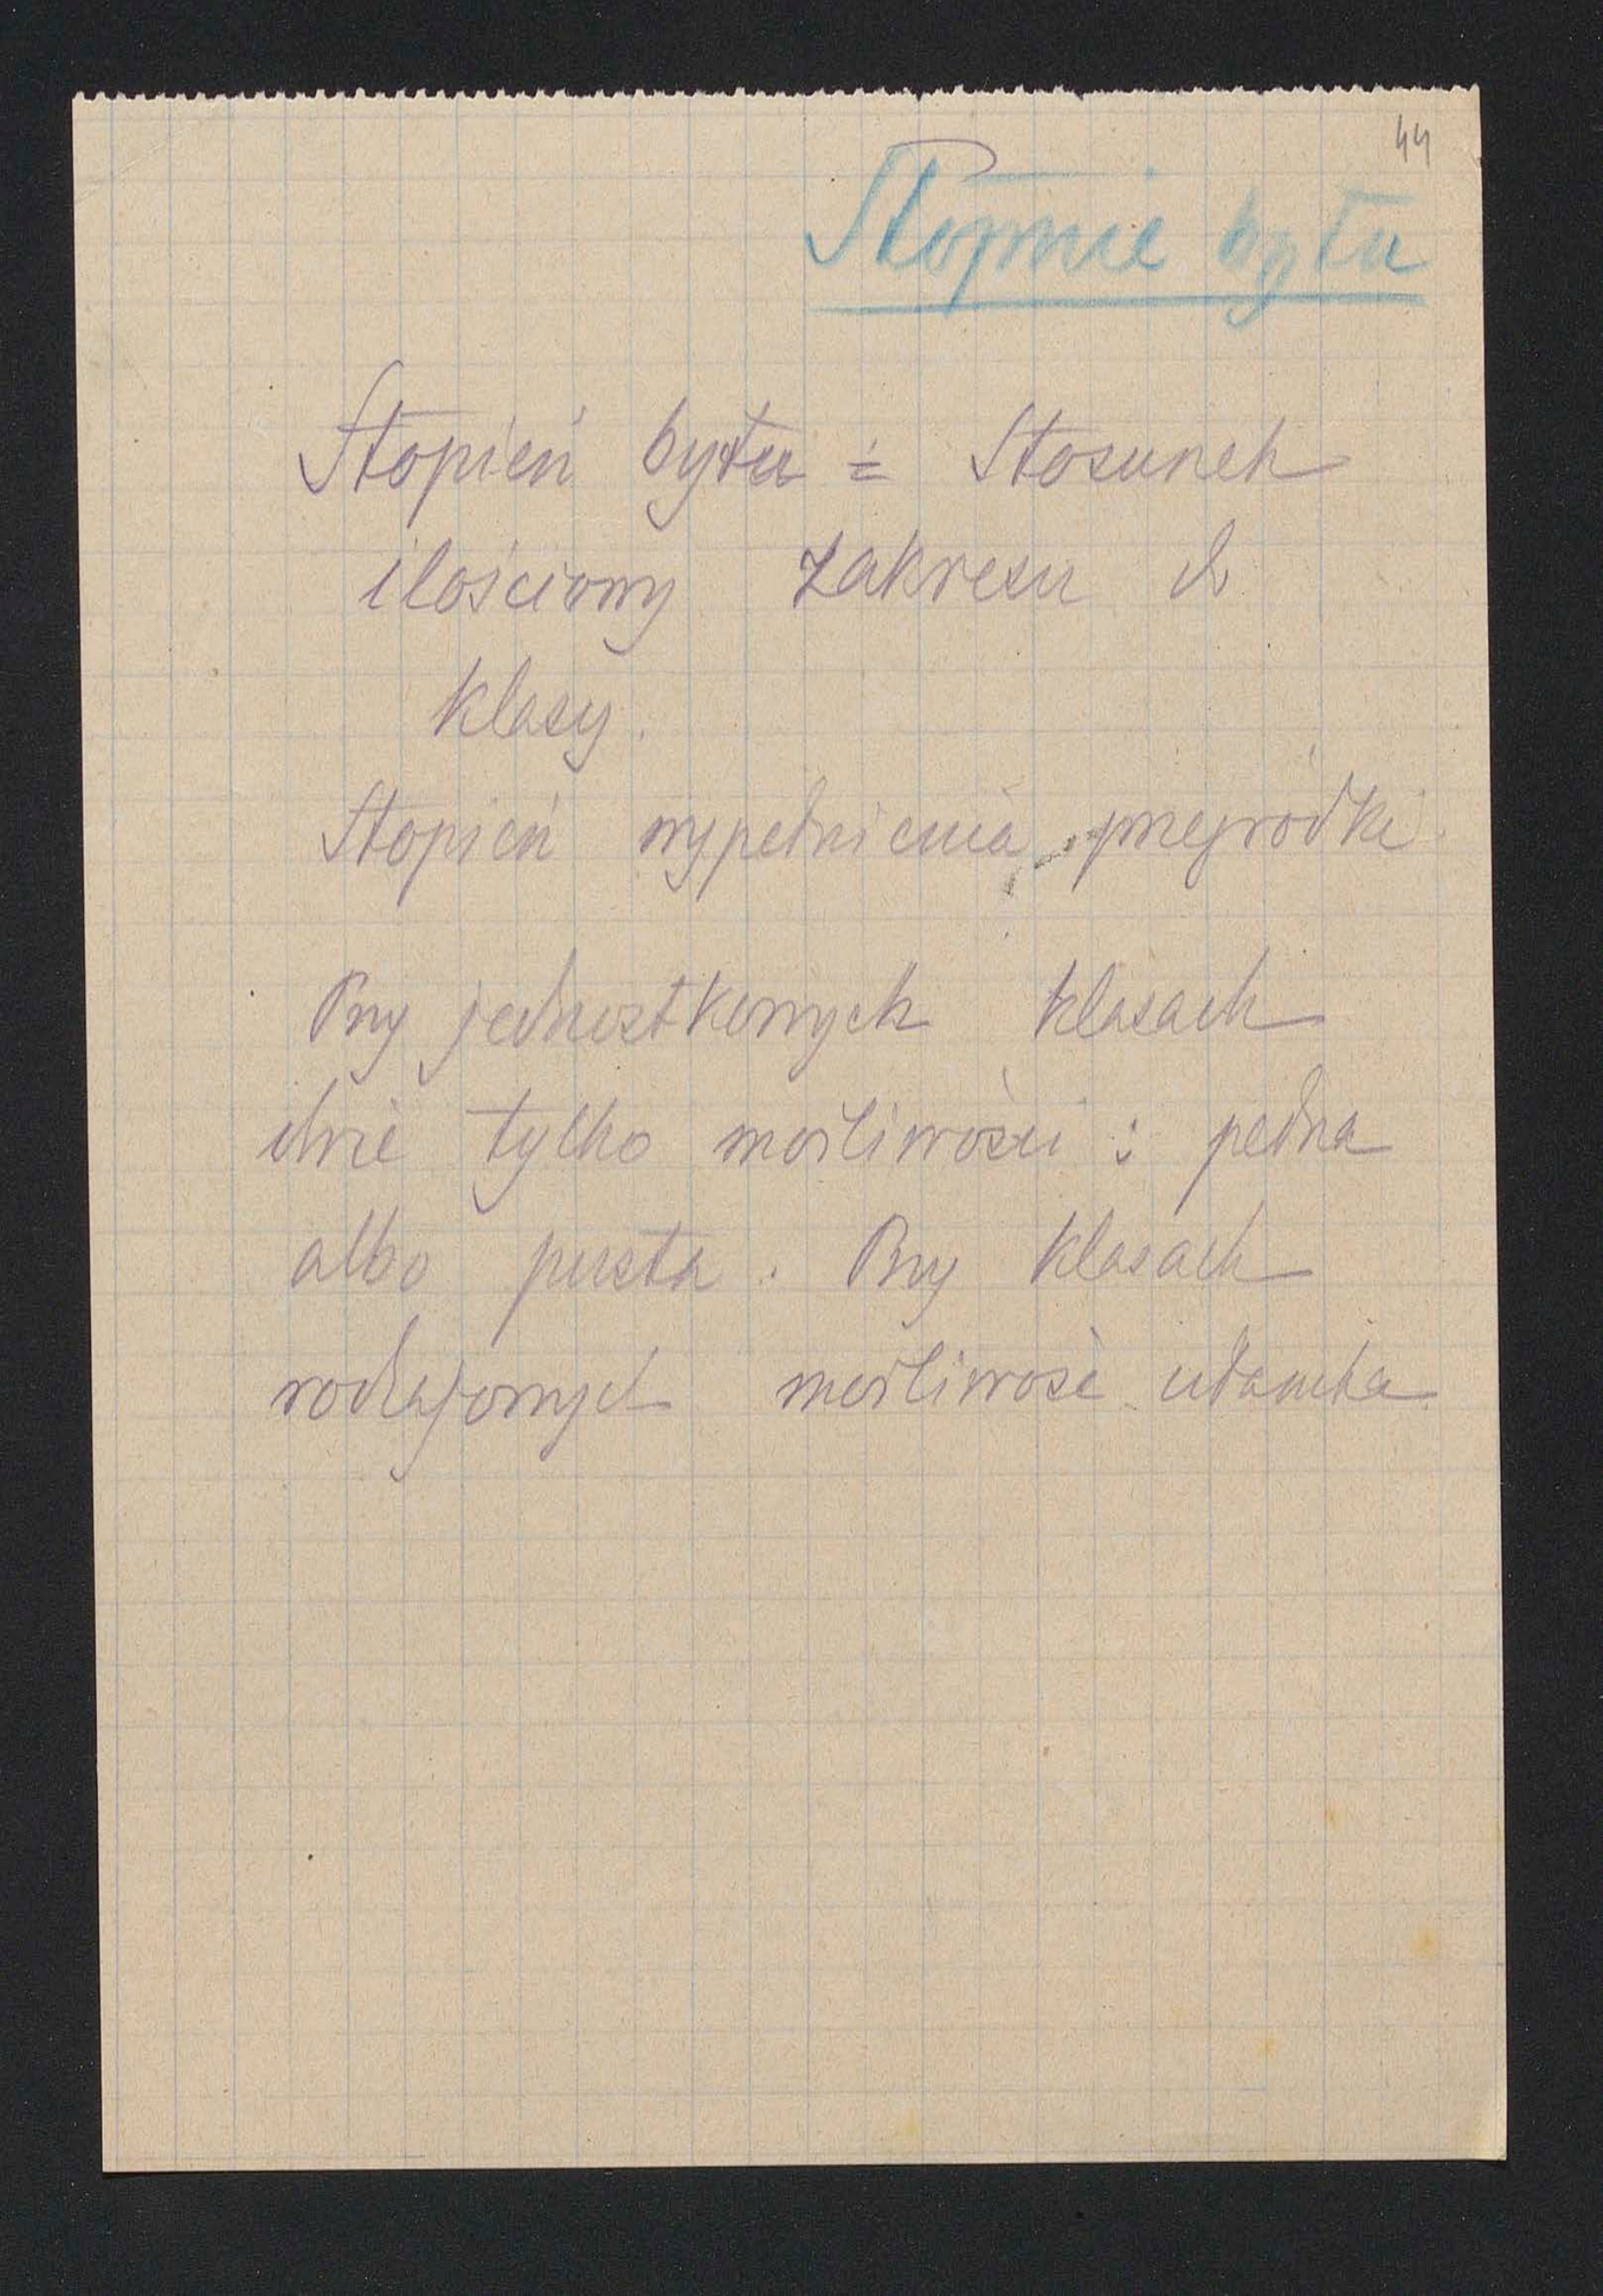 44
Stopnie bytu
Stopień bytu = Stosunek
ilościowy zakresu do
klasy.
Stopień wypełnienia przegródki.
Przy jednostkowych klasach
dwie tylko możliwości: pełna
albo pusta. Przy klasach
rodzajowych możliwość ułamka.